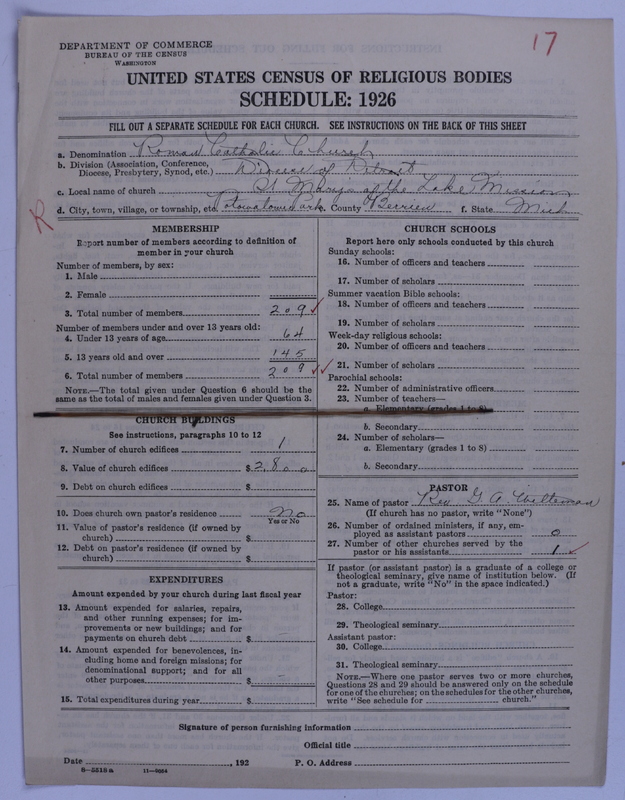 17
DEPARTMENT OF COMMERCE
BUREAU OF THE CENSUS
WASHINGTON
UNITED STATES CENSUS OF RELIGIOUS BODIES
SCHEDULE: 1926
FILL OUT A SEPARATE SCHEDULE FOR EACH CHURCH. SEE INSTRUCTIONS ON THE BACK OF THIS SHEET
a. Denomination Roman Catholic Church
b. Division (Association, Conference,
Diocese, Presbytery, Synod, etc.) Diocese of Detroit
c. Local name of church St Marys of the Lake Mission
R
d. City, town, village, or township, etc. Potowatomi Park e. County Berrien f. State Mich
MEMBERSHIP
Report number of members according to definition of
member in your church
Number of members, by sex:
1. Male
2. Female
3. Total number of members 209
Number of members under and over 13 years old:
4. Under 13 years of age 64
5. 13 years old and over 145
6. Total number of members 209
NOTE.—The total given under Question 6 should be the
same as the total of males and females given under Question 3.
CHURCH BUILDINGS
See instructions, paragraphs 10 to 12
7. Number of church edifices 1
8. Value of church edifices $2,800
9. Debt on church edifices $
10. Does church own pastor's residence No
Yes or No
11. Value of pastor's residence (if owned by
church) $
12. Debt on pastor's residence (if owned by
church) $
EXPENDITURES
Amount expended by your church during last fiscal year
13. Amount expended for salaries, repairs,
and other running expenses; for im-
provements or new buildings; and for
payments on church debt $ –
14. Amount expended for benevolences, in-
cluding home and foreign missions; for
denominational support; and for all
other purposes $ –
15. Total expenditures during year $
CHURCH SCHOOLS
Report here only schools conducted by this church
Sunday schools:
16. Number of officers and teachers
17. Number of scholars
Summer vacation Bible schools:
18. Number of officers and teachers
19. Number of scholars
Week-day religious schools:
20. Number of officers and teachers
21. Number of scholars
Parochial schools:
22. Number of administrative officers
23. Number of teachers—
a. Elementary (grades 1 to 8)
b. Secondary
24. Number of scholars—
a. Elementary (grades 1 to 8)
b. Secondary
PASTOR
25. Name of pastor Rev G. A. Weltman
(If church has no pastor, write "None")
26. Number of ordained ministers, if any, em-
ployed as assistant pastors 0
27. Number of other churches served by the
pastor or his assistants 1
If pastor (or assistant pastor) is a graduate of a college or
theological seminary, give name of institution below. (If
not a graduate, write "No" in the space indicated.)
Pastor:
28. College
29. Theological seminary
Assistant pastor:
30. College
31. Theological seminary
NOTE.—Where one pastor serves two or more churches,
Questions 28 and 29 should be answered only on the schedule
for one of the churches; on the schedules for the other churches,
write "See schedule for church."
Signature of person furnishing information
Official title
Date , 192 P. O. Address
8—5318a 11—9064